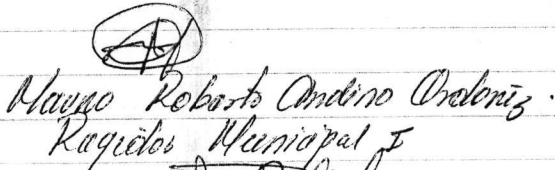 Mauro Roberto Andino Ordoñez.
Regidor Municipal I